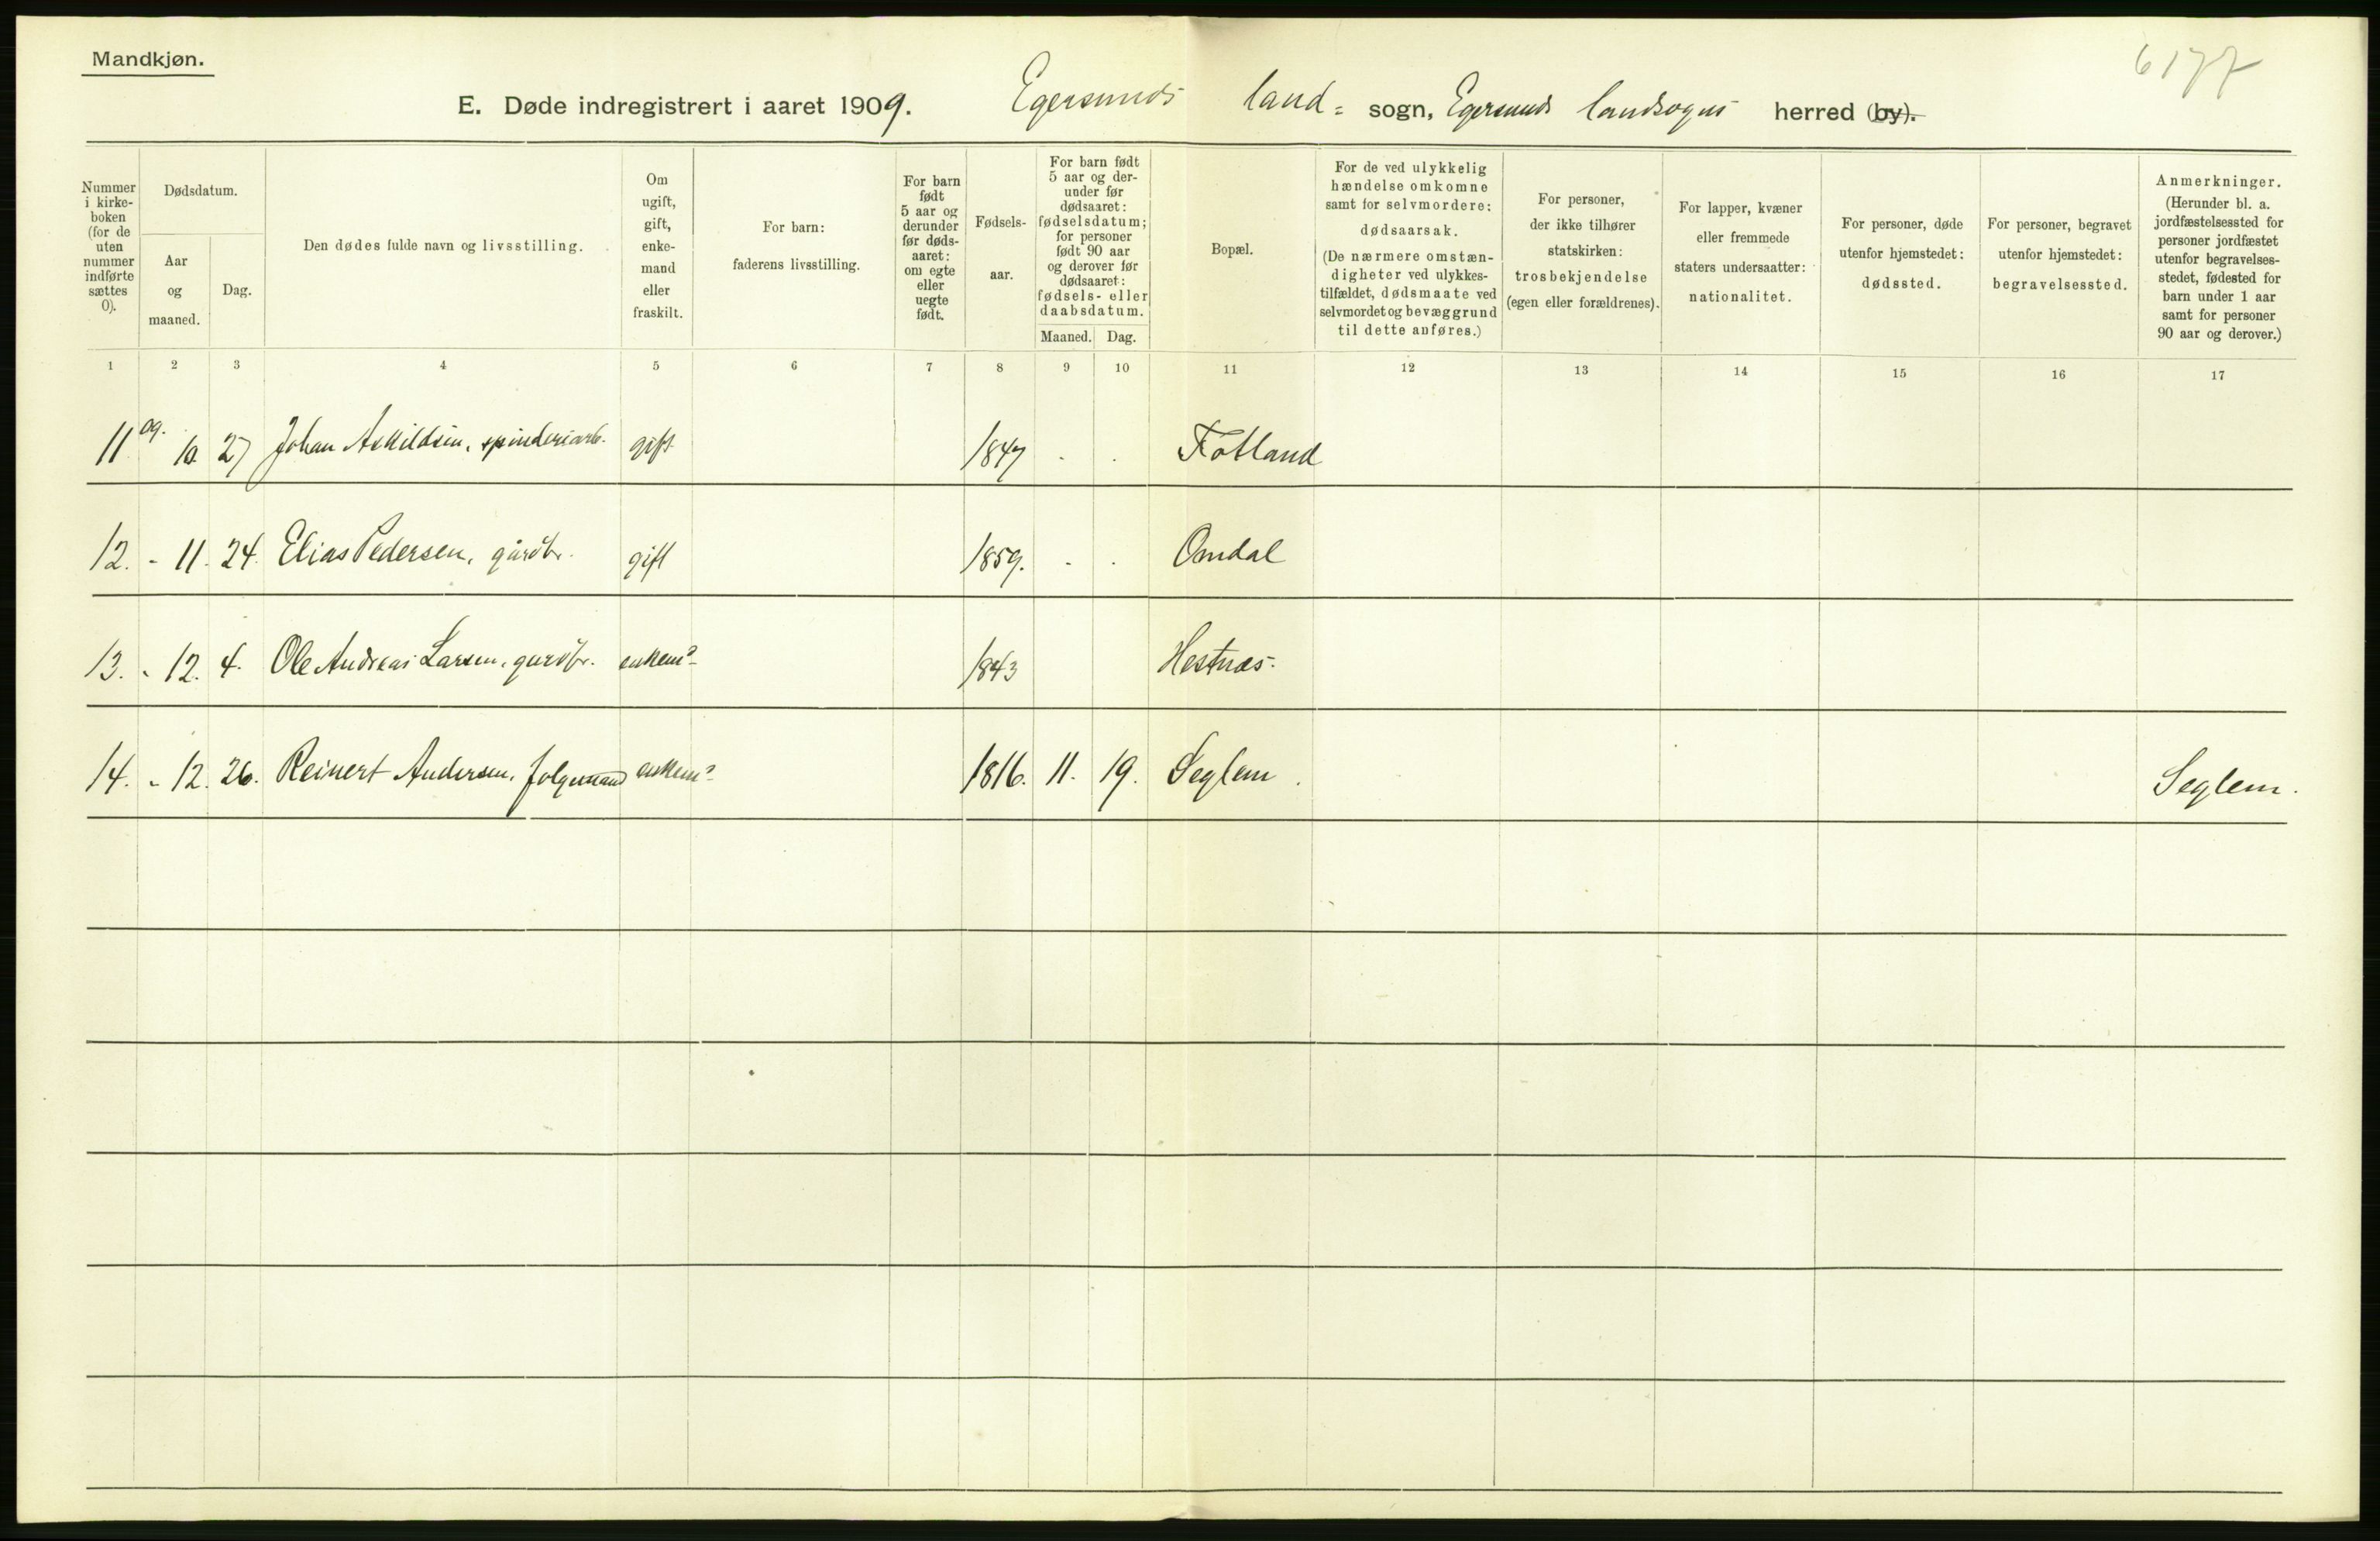 Mandkjøn.
6177
E. Døde indregistrert i aaret 1909. Egersunds land= sogn, Egersunds landsogns herred (by).
Nummer i kirke-boken (for de uten nummer indførte sættes 0).
Dødsdatum.
Aar og maaned.
Dag.
Den dødes fulde navn og livsstilling.
Om ugift, gift, enke-mand eller fraskilt.
For barn: faderens livsstilling.
For barn født 5 aar og derunder før døds-aaret: om egte eller uegte født.
Fødsels-aar.
For barn født 5 aar og der-under før dødsaaret: fødselsdatum; for personer født 90 aar og derover før dødsaaret: fødsels- eller daabsdatum.
Maaned. Dag.
Bopæl.
For de ved ulykkelig hændelse omkomne samt for selvmordere: dødsaarsak. (De nærmere omstæn-digheter ved ulykkes-tilfældet, dødsmaate ved selvmordet og bevæggrund til dette anføres.)
For personer, der ikke tilhører statskirken: trosbekjendelse (egen eller forældrenes).
For lapper, kvæner eller fremmede staters undersaatter: nationalitet.
For personer, døde utenfor hjemstedet: dødssted.
For personer, begravet utenfor hjemstedet: begravelsessted.
Anmerkninger. (Herunder bl. a. jordfæstelsessted for personer jordfæstet utenfor begravelses-stedet, fødested for barn under 1 aar samt for personer 90 aar og derover.)
1 2 3 4 5 6 7 8 9 10 11 12 13 14 15 16 17
11 09. 10. 27 Johan Askildsen, spinderiarb. gift 1847 - . Fotland
12. - 11. 24. Elias Pedersen, gårdbr. gift 1859. - . Omdal
13. - 12. 4. Ole Andreas Larsen, gardbr. enkem? 1843 Hestnæs.
14. - 12. 26. Reinert Andersen, folgemand enkem? 1816. 11. 19. Seglem . Seglem.